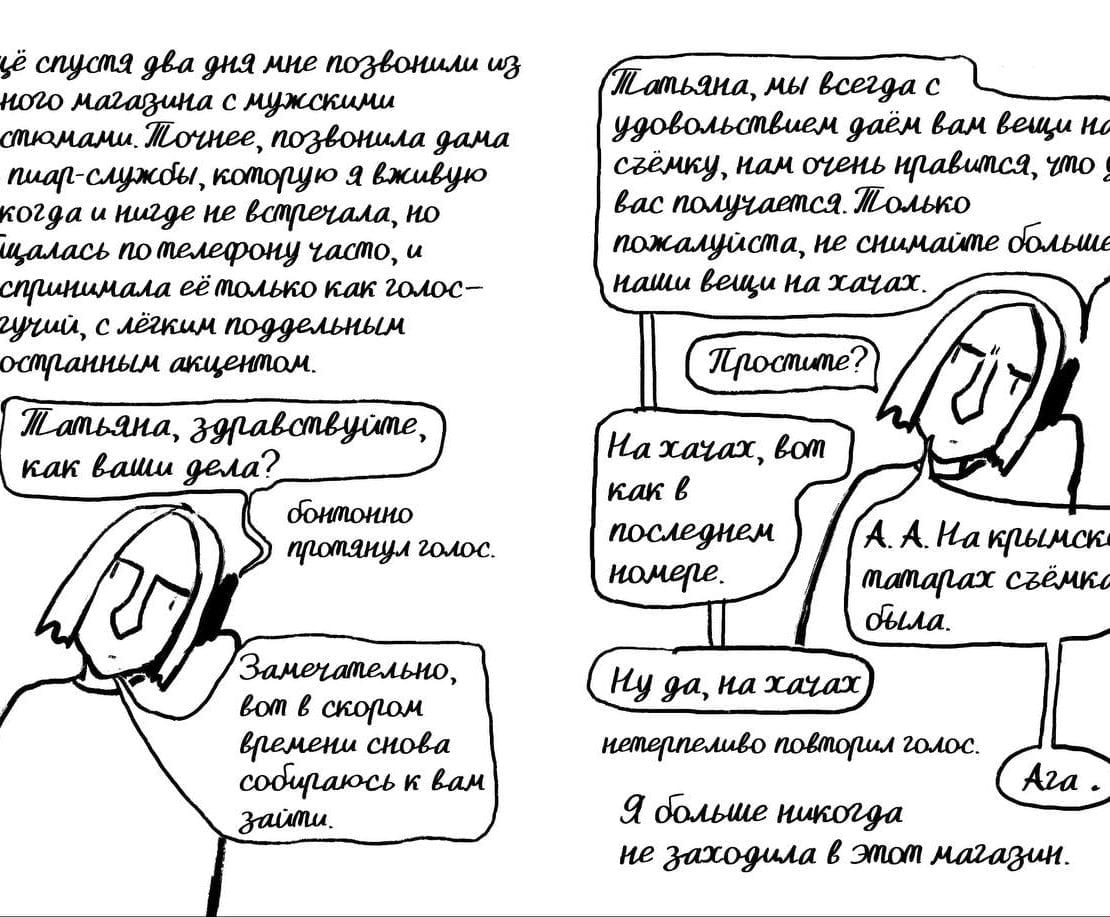 щё спустя два дня мне позвонили из
ного магазина с мужскими
стюмами. Точнее, позвонила дама
пиар-службы, которую я вживую
когда и нигде не встречала, но
щалась по телефону часто, и
спринимала её только как голос–
гучий, с лёгким поддельным
остранным акцентом.
Татьяна, здравствуйте,
как ваши дела?
бонтонно
протянул голос.
Замечательно,
вот в скором
времени снова
собираюсь к вам
зайти.
Татьяна, мы всегда с
удовольствием даём вам вещи на
съёмку, нам очень нравится, что у
вас получается. Только
пожалуйста, не снимайте больше
наши вещи на хачах.
Простите?
На хачах, вот
как в
последнем
номере.
А. А. На крымск
татарах съёмка
была.
Ну да, на хачах
нетерпеливо повторил голос.
Ага.
Я больше никогда
не заходила в этот магазин.